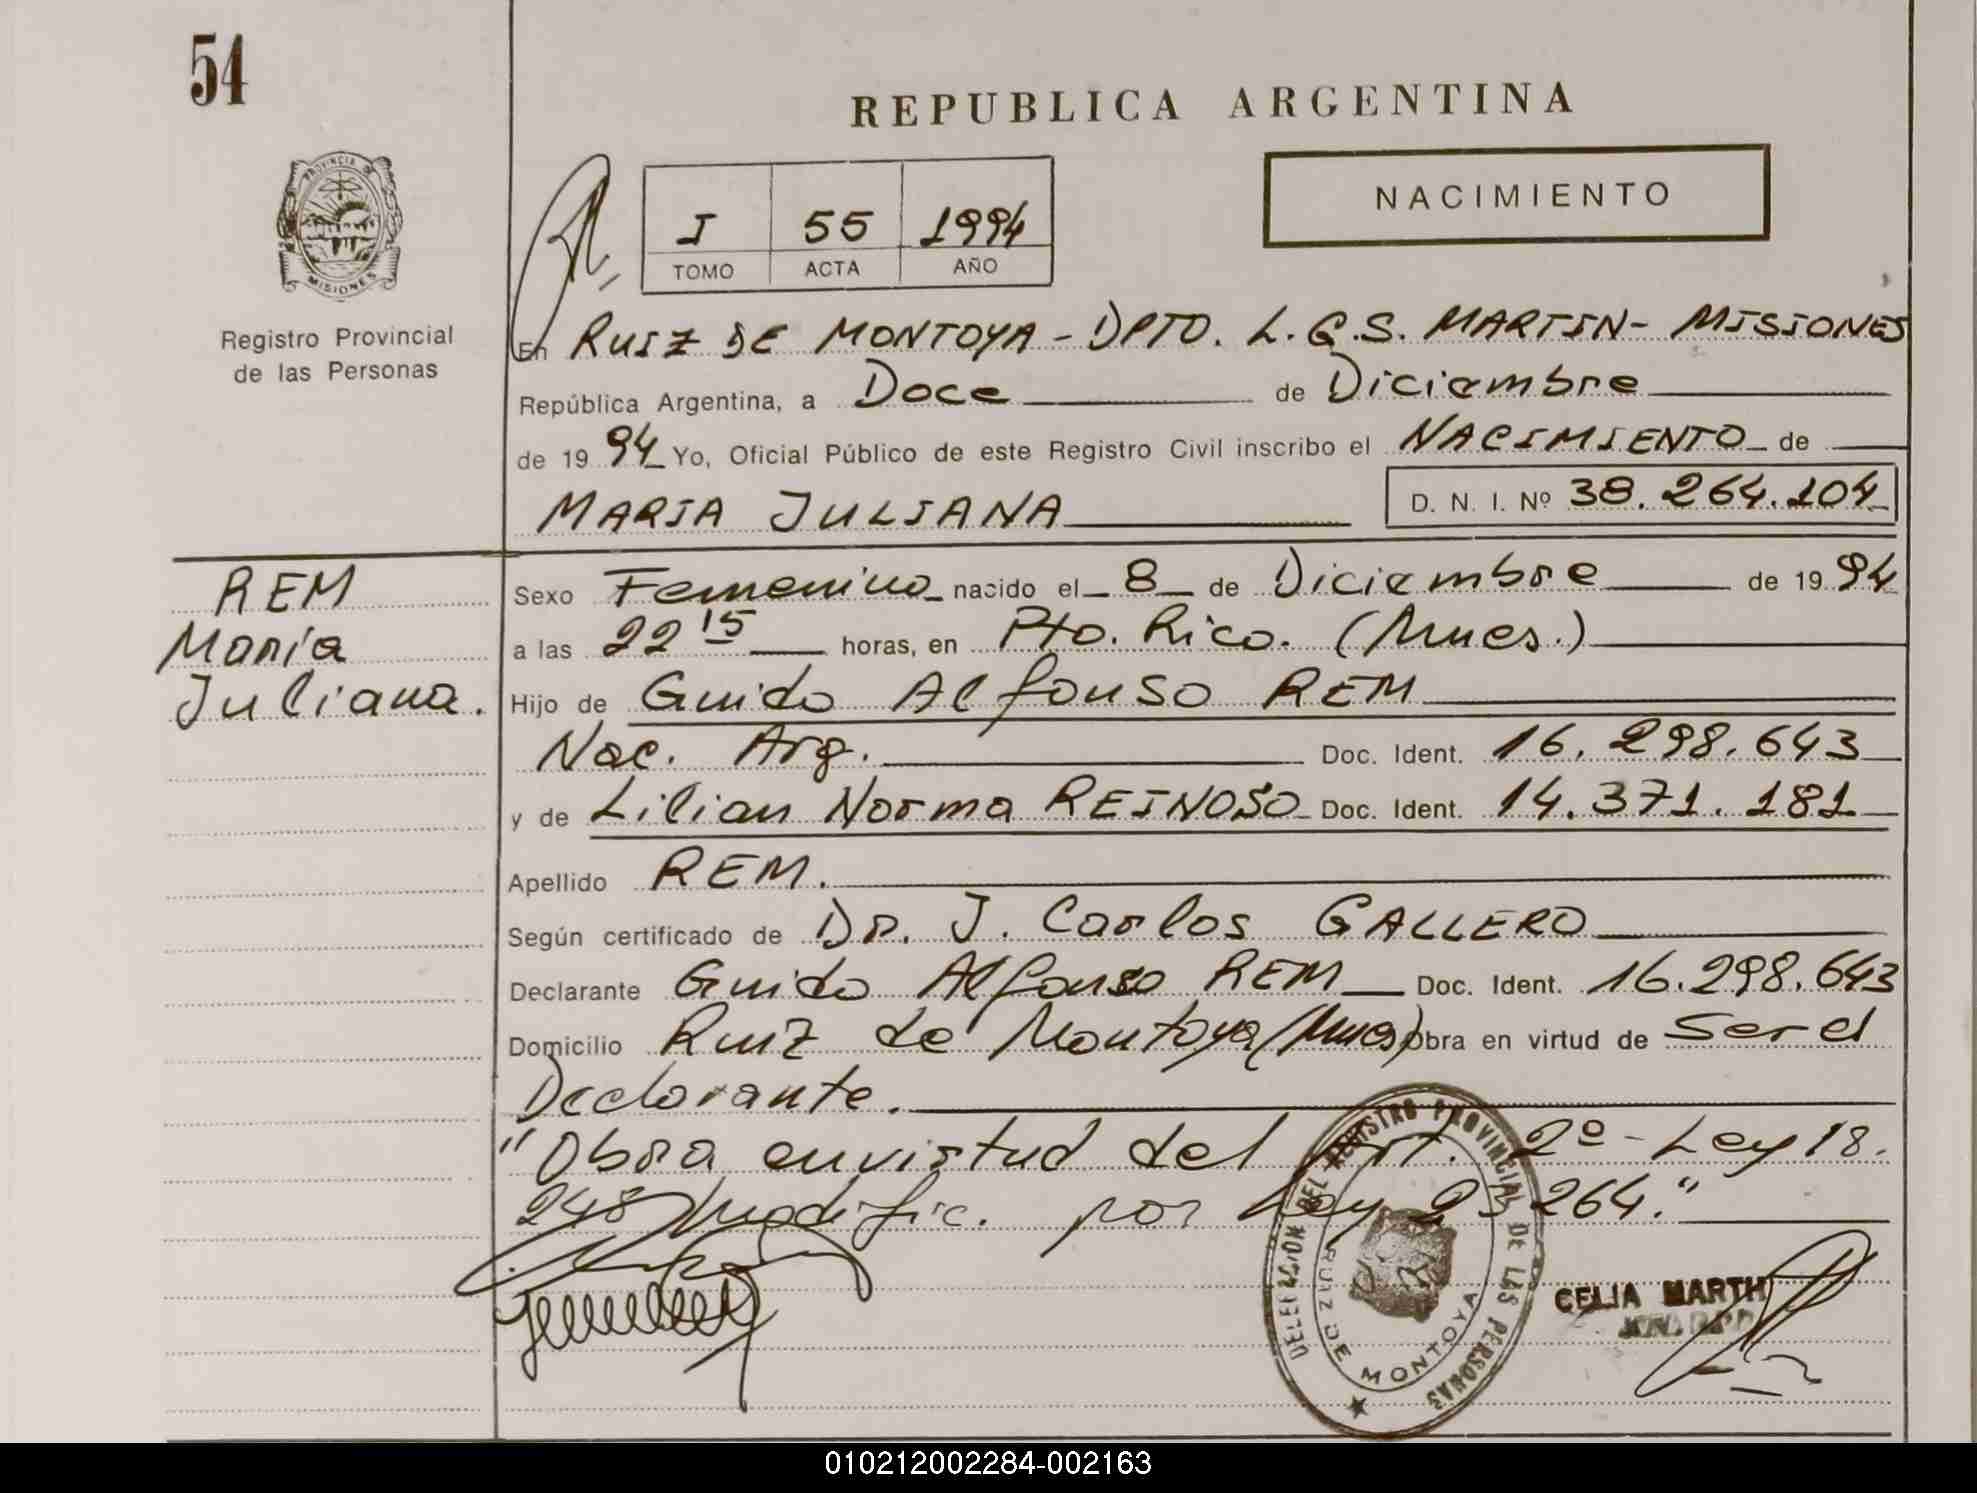 54
REPUBLICA ARGENTINA
PROVINCIA DE
MISIONES
Registro Provincial
de las Personas
I 55 1994
TOMO ACTA AÑO
NACIMIENTO
En RUIZ DE MONTOYA - DPTO. L.G.S. MARTIN - MISIONES
República Argentina, a Doce de Diciembre
de 1994 Yo, Oficial Público de este Registro Civil inscribo el NACIMIENTO de
MARIA JULIANA D. N. I. Nº 38.264.104
REM
María
Juliana.
Sexo Femenino nacido el 8 de Diciembre de 1994
a las 22 15 horas, en Pto. Rico. (Mnes.)
Hijo de Guido Alfonso REM
Nac. Arg. Doc. Ident. 16.298.643
y de Lilian Norma REINOSO Doc. Ident. 14.371.181
Apellido REM.
Según certificado de Dr. J. Carlos GALLERO
Declarante Guido Alfonso REM Doc. Ident. 16.298.643
Domicilio Ruiz de Montoya (Mnes) obra en virtud de Ser el
Declarante.
"Obra en virtud del Art. 2º - Ley 18.
248 Modific. por Ley 23264."
DELEGACION DEL REGISTRO PROVINCIAL DE LAS PERSONAS
RUIZ DE MONTOYA
CELIA MARTH
010212002284-002163